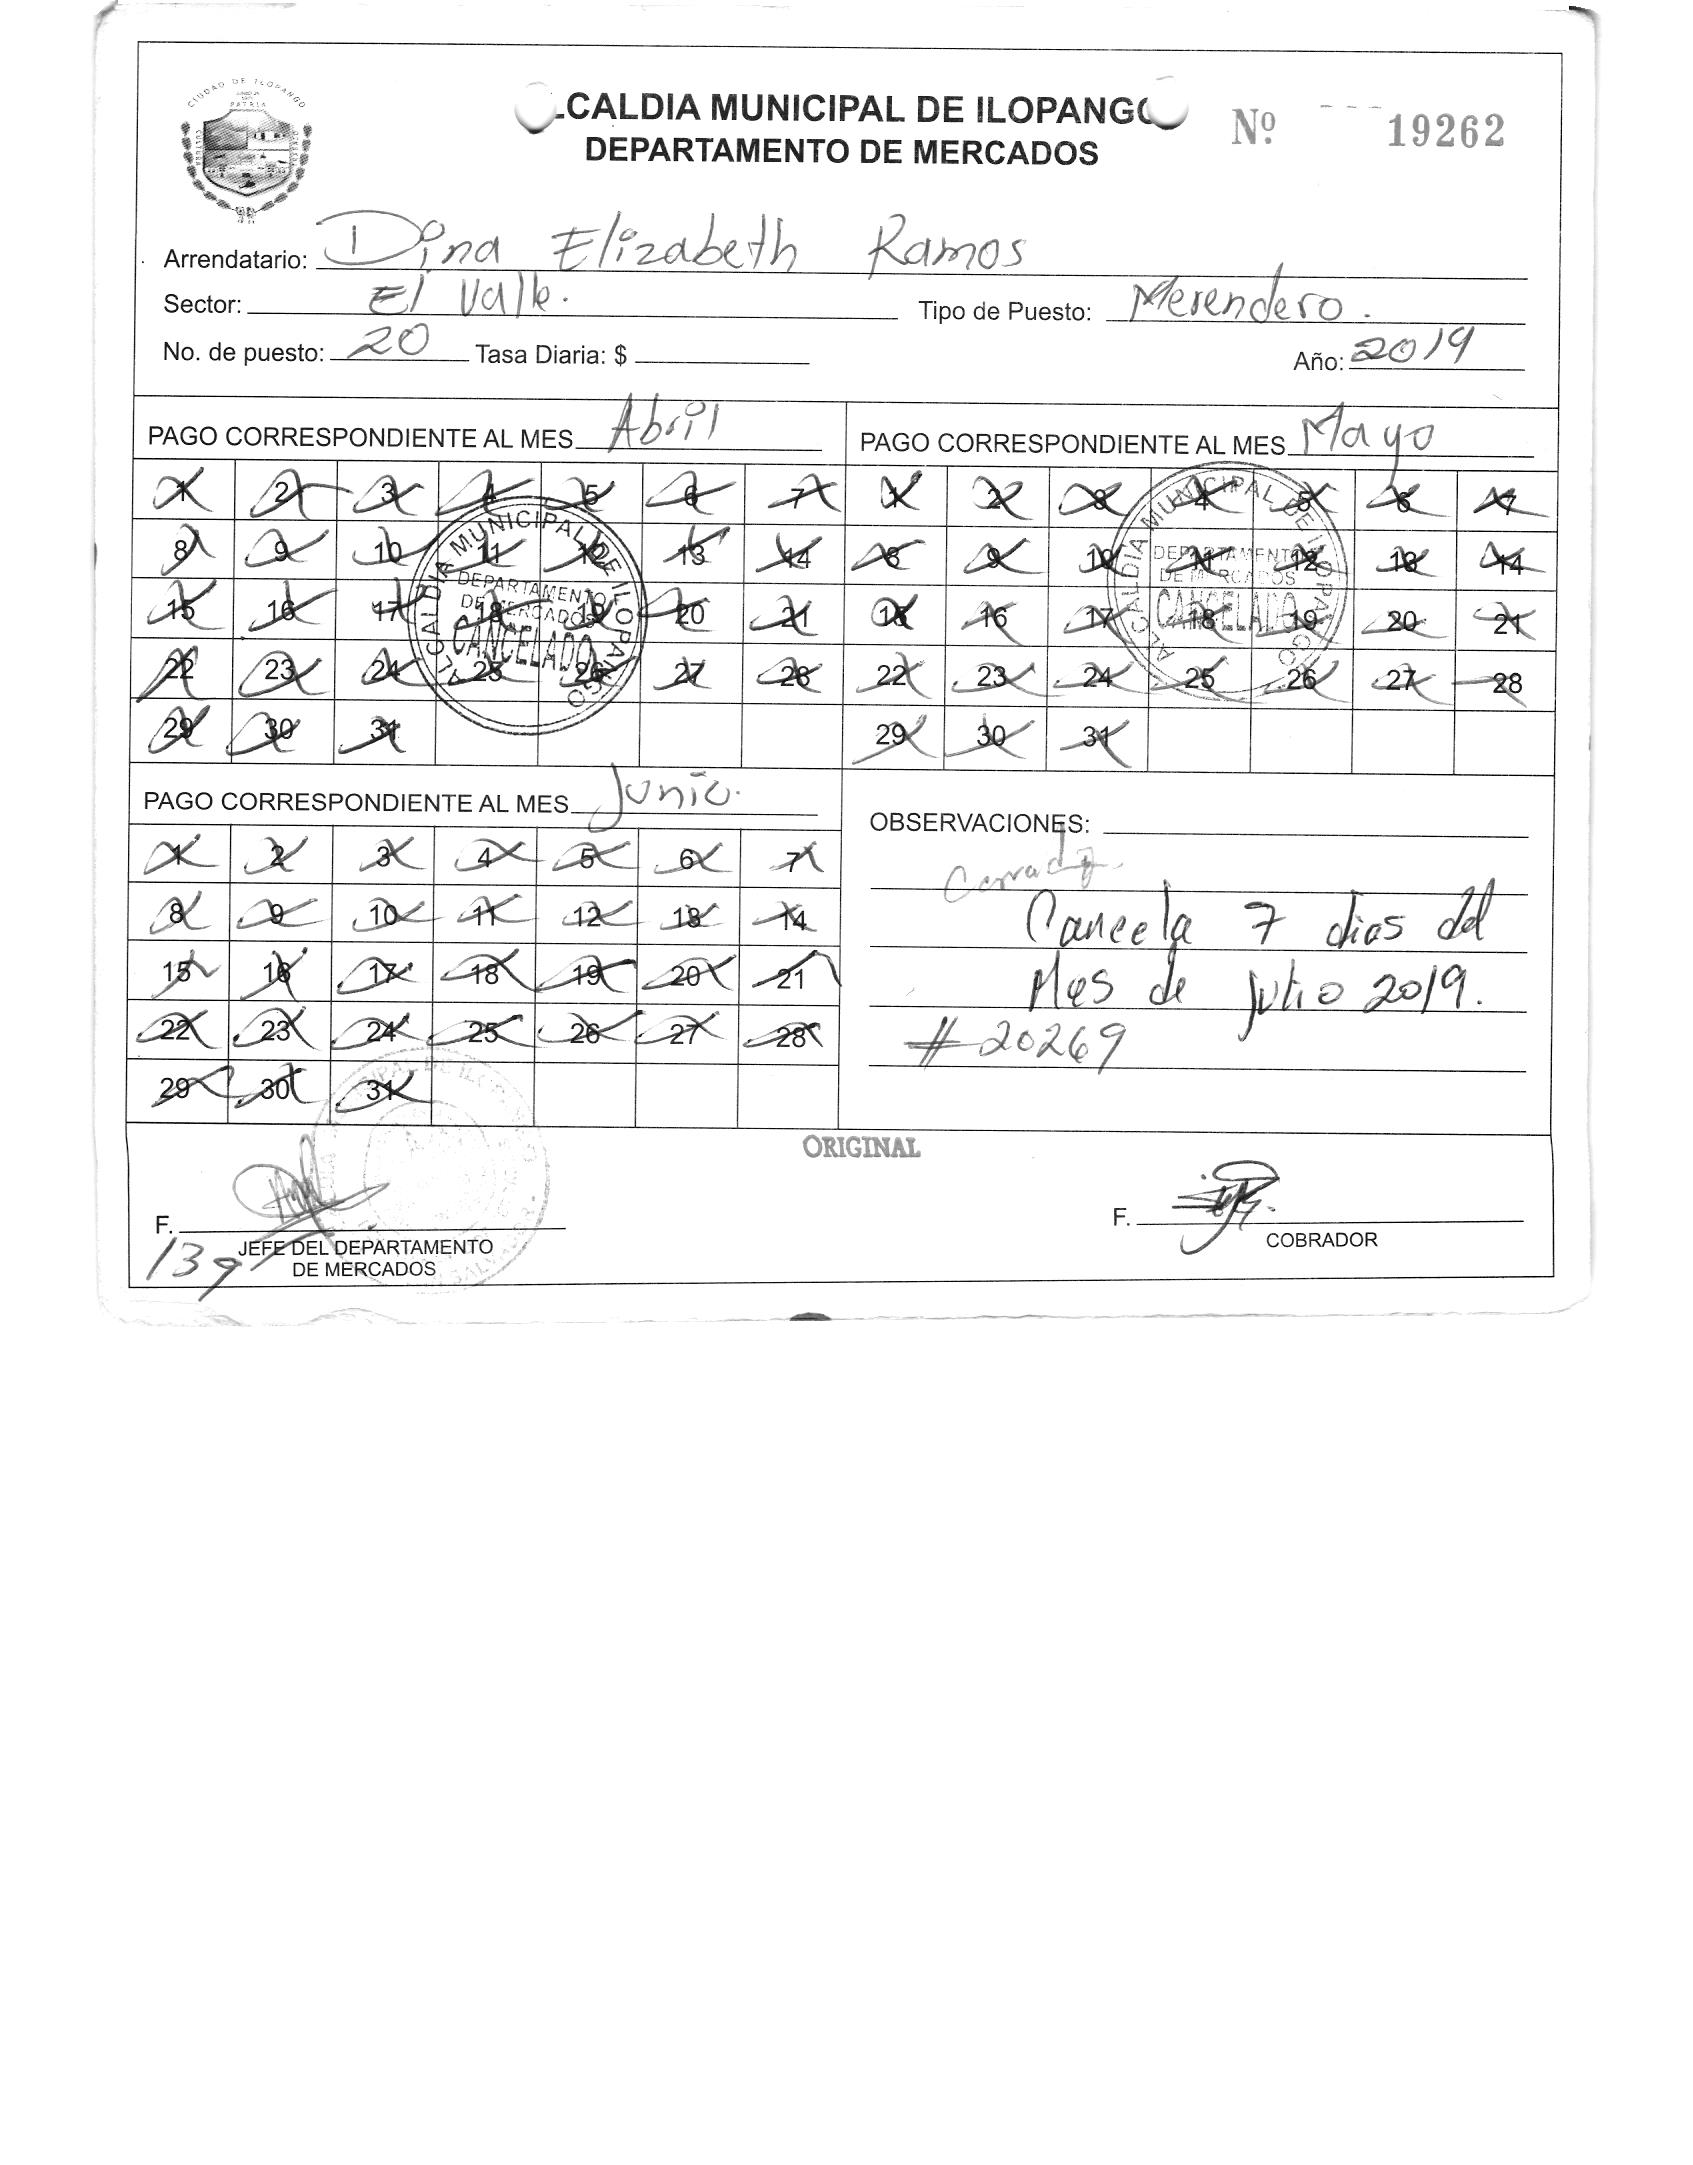 CIUDAD DE ILOPANGO
PATRIA
CULTURA
LCALDIA MUNICIPAL DE ILOPANGO
DEPARTAMENTO DE MERCADOS
Nº 19262
Arrendatario: Dina Elizabeth Ramos
Sector: El Valle. Tipo de Puesto: Merendero.
No. de puesto: 20 Tasa Diaria: $ Año: 2019
PAGO CORRESPONDIENTE AL MES Abril
1 2 3 4 5 6 7
8 9 10 11 12 13 14
15 16 17 18 19 20 21
22 23 24 25 26 27 28
29 30 31
ALCALDIA MUNICIPAL DE ILOPANGO
DEPARTAMENTO
DE MERCADOS
CANCELADO
PAGO CORRESPONDIENTE AL MES Mayo
1 2 3 4 5 6 7
8 9 10 11 12 13 14
15 16 17 18 19 20 21
22 23 24 25 26 27 28
29 30 31
ALCALDIA MUNICIPAL DE ILOPANGO
DEPARTAMENTO
DE MERCADOS
CANCELADO
PAGO CORRESPONDIENTE AL MES Junio.
1 2 3 4 5 6 7
8 9 10 11 12 13 14
15 16 17 18 19 20 21
22 23 24 25 26 27 28
29 30 31
OBSERVACIONES:
Cancela 7 dias del
Mes de Julio 2019.
# 20269
ORIGINAL
F.
JEFE DEL DEPARTAMENTO
DE MERCADOS
139
F.
COBRADOR